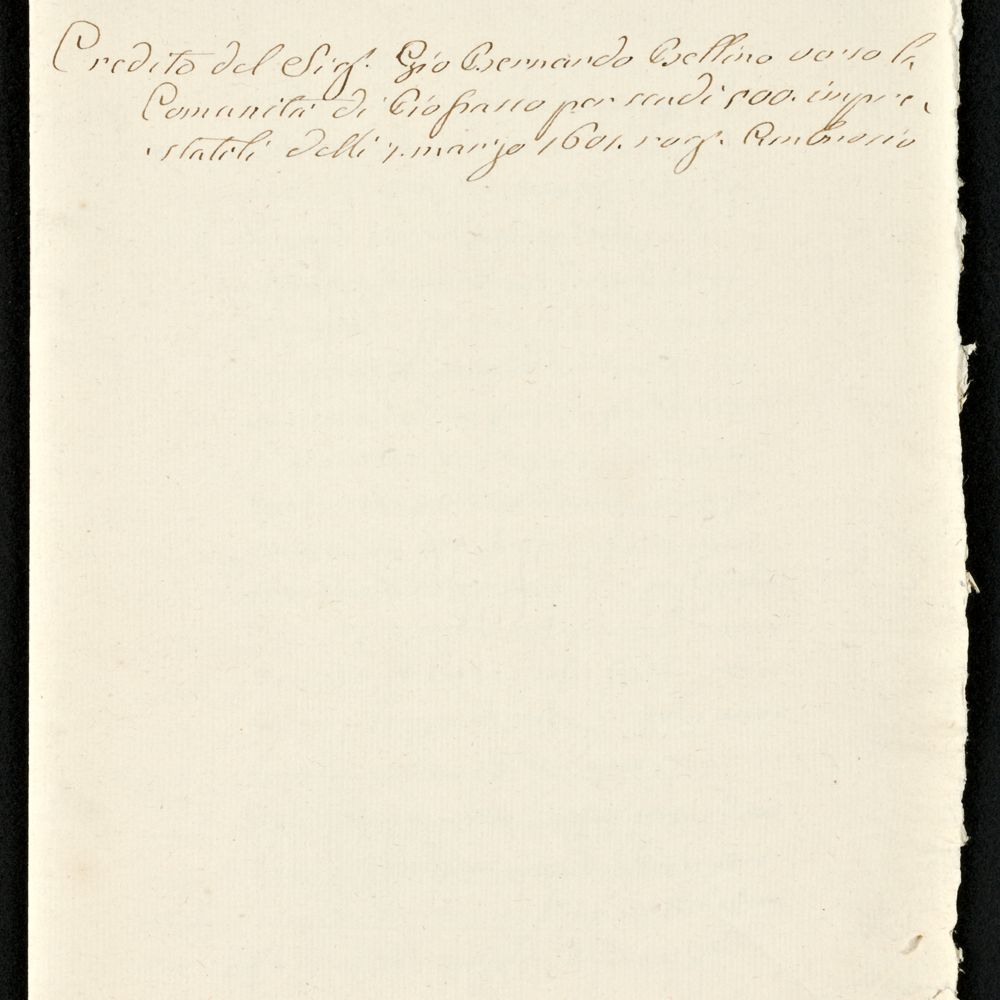 Credito del Sig.r Gio Bernardo Bellino verso la
Comunità di Piofrasco per scudi 500. impre-
statili delli 7. marzo 1601. rog.